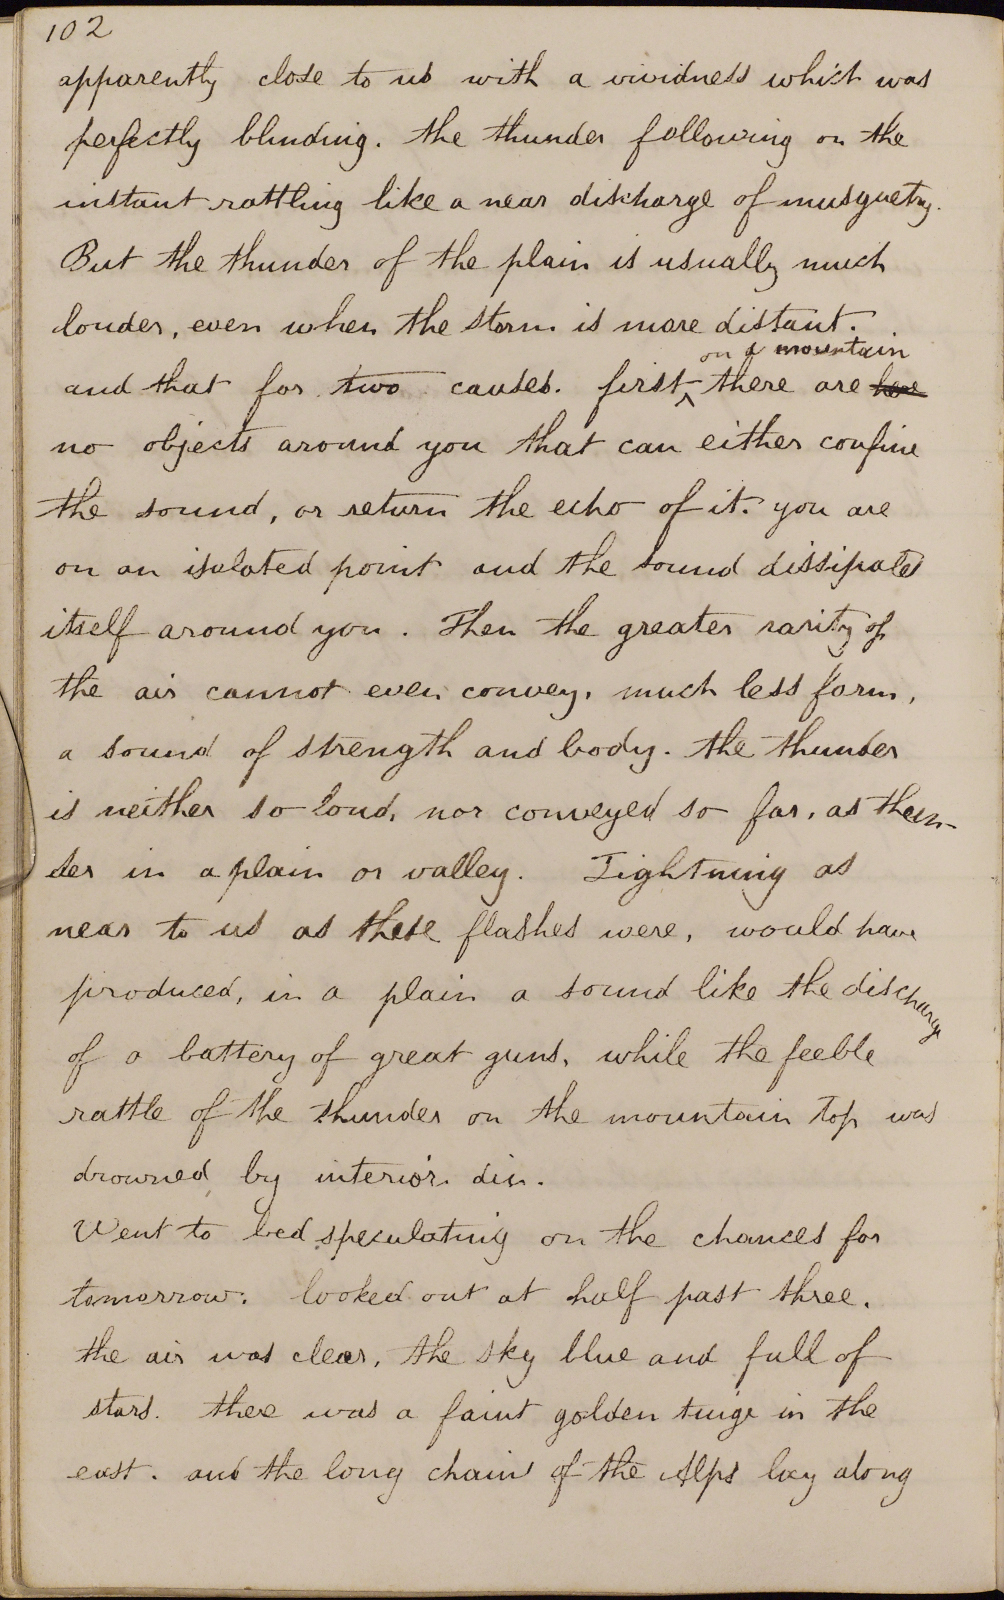 102
apparently close to us with a vividness which was
perfectly blinding. the thunder following on the
instant rattling like a near discharge of musquetry.
But the thunder of the plain is usually much
louder, even when the storm is more distant.
on a mountain
and that for two causes. first ^ there are here
no objects around you that can either confine
the sound, or return the echo of it. you are
on an isolated point and the sound dissipates
itself around you. Then the greater rarity of
the air cannot even convey, much less form,
a sound of strength and body. the thunder
is neither so loud, nor conveyed so far, as thun-
der in a plain or valley. Lightning as
near to us as these flashes were, would have
produced, in a plain a sound like the discharge
of a battery of great guns, while the feeble
rattle of the thunder on the mountain top was
drowned by interior din.
Went to bed speculating on the chances for
tomorrow. looked out at half past three.
the air was clear, the sky blue and full of
stars. there was a faint golden tinge in the
east. and the long chain of the Alps lay along